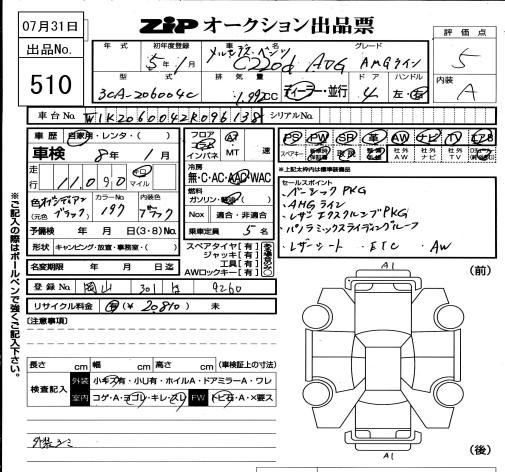 07月31日
ZIP オークション出品票
出品No.
510
年式 初年度登録 車名 グレード
5年 1月 メルセデス・ベンツ C220d AVG AMGライン
型式 排気量 ドア ハンドル
3CA-206004C 1,992CC ディーラー・並行 4 左・右
評価点
5
内装
A
車台No. W1K2060042R096138 シリアルNo.
車歴 自家用・レンタ・( )
車検 8年 1月
走行 11,090 キロ マイル
色 オブシディアンブラック (元色) カラーNo. 197 内装色 ブラック
予備検 年 月 日(3・8)No.
形状 キャンピング・放送・事務室・( )
名変期限 年 月 日迄
フロア コラム インパネ AT MT 速
冷房
無・C・AC・AAC・WAC
燃料
ガソリン・軽油・( )
Nox 適合・非適合
乗車定員 5名
スペアタイヤ[有]
ジャッキ[有]
工具[有]
AWロックキー[有]
PS PW SR 革 AW ナビ TV エアB
スペアキー 新車時保証書 取説 整備手帳 社外AW 社外ナビ 社外TV
*上記太枠内は標準装備品
セールスポイント
・ベーシックPKG
・AMGライン
・レザーエクスクルーシブPKG
・パノラミックスライディングルーフ
・レザーシート ・ETC ・AW
登録No. 岡山 301 は 9260
リサイクル料金 有(¥ 20810) 未
[注意事項]
※ご記入の際はボールペンで強くご記入下さい。
長さ cm 幅 cm 高さ cm (車検証上の寸法)
検査記入 外装 小キズ有・小U有・ホイルA・ドアミラーA・ワレ
室内 コゲ・A・ヨゴレ・キレ・スレ FW トビ石・A・×要ス
外装シミ
A1
(前)
A1
(後)